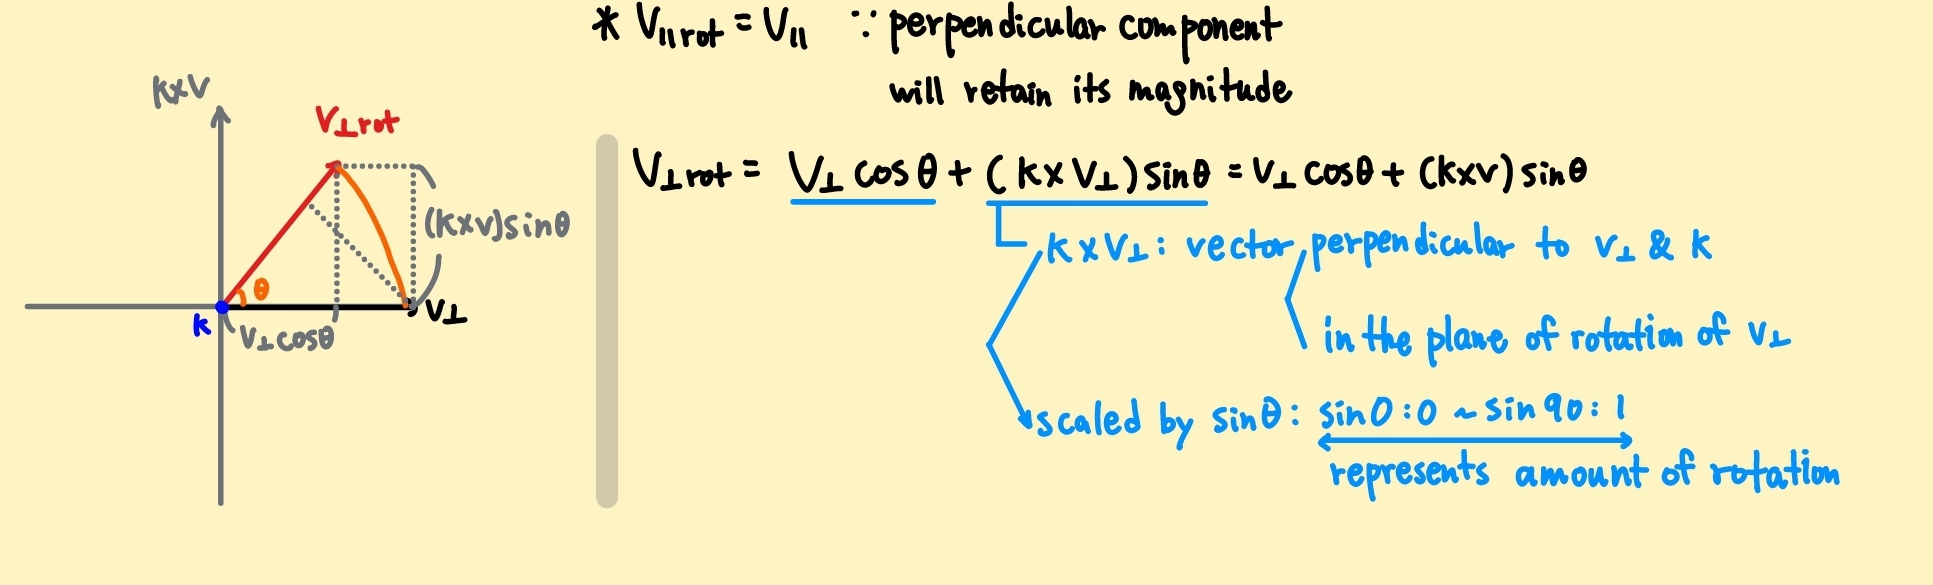 * V∥rot = V∥ ∵ perpendicular component
will retain its magnitude
k×V
V⊥rot
(k×v)sinθ
θ
k
V⊥cosθ
V⊥
V⊥rot = V⊥ cosθ + (k×V⊥)sinθ = V⊥ cosθ + (k×v) sinθ
k×V⊥: vector perpendicular to V⊥ & k
in the plane of rotation of V⊥
scaled by sinθ: sin0:0 ~ sin90:1
represents amount of rotation